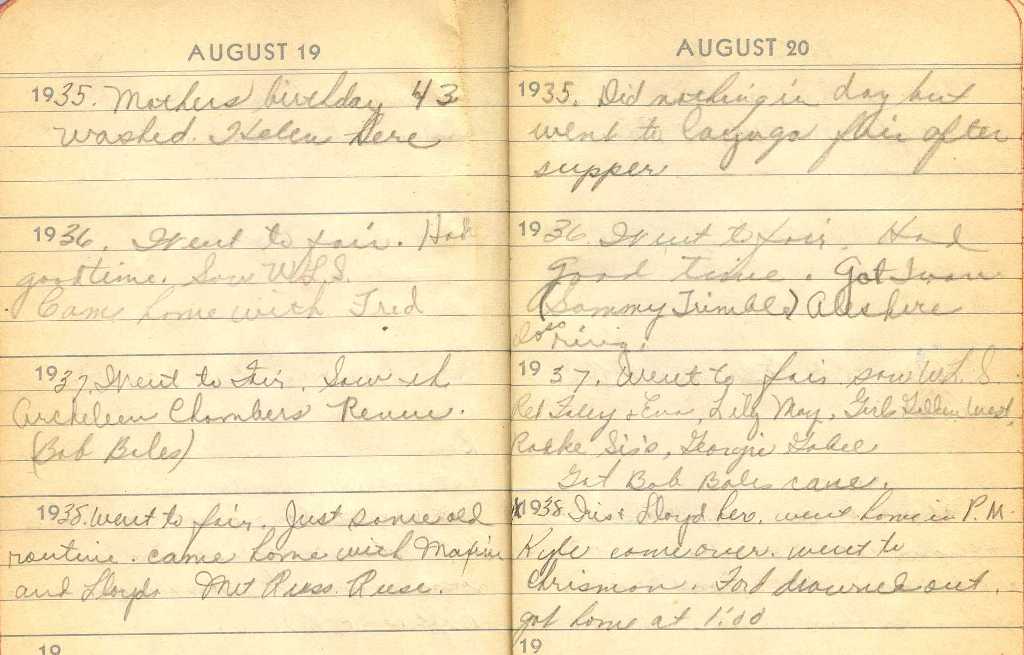 AUGUST 19
1935. Mothers birthday 43
washed. Helen here
1936. Went to fair. Had
good time. Saw WLS.
Came home with Fred
1937. Went to Fair. Saw
Archeleen Chambers Revue.
(Bob Bales)
1938. Went to fair. Just same old
routine. came home with Maxine
and Lloyd. Met Russ Reese.
19
AUGUST 20
1935. Did nothing in day but
went to Cayuga fair after
supper
1936. Went to fair. Had
good time. Got Ivan
(Sammy Trimble) Aleshire
ring.
1937. Went to fair saw W.L.S.
Red Foley & Eva, Lily May, Girls Golden West,
Sis's, Georgie Gobel
Got Bob Bales cane.
x1938. Iris & Lloyd here. went home in P.M.
Kyle come over. went to
Chrisman. Ford drowned out.
got home at 1:00
19